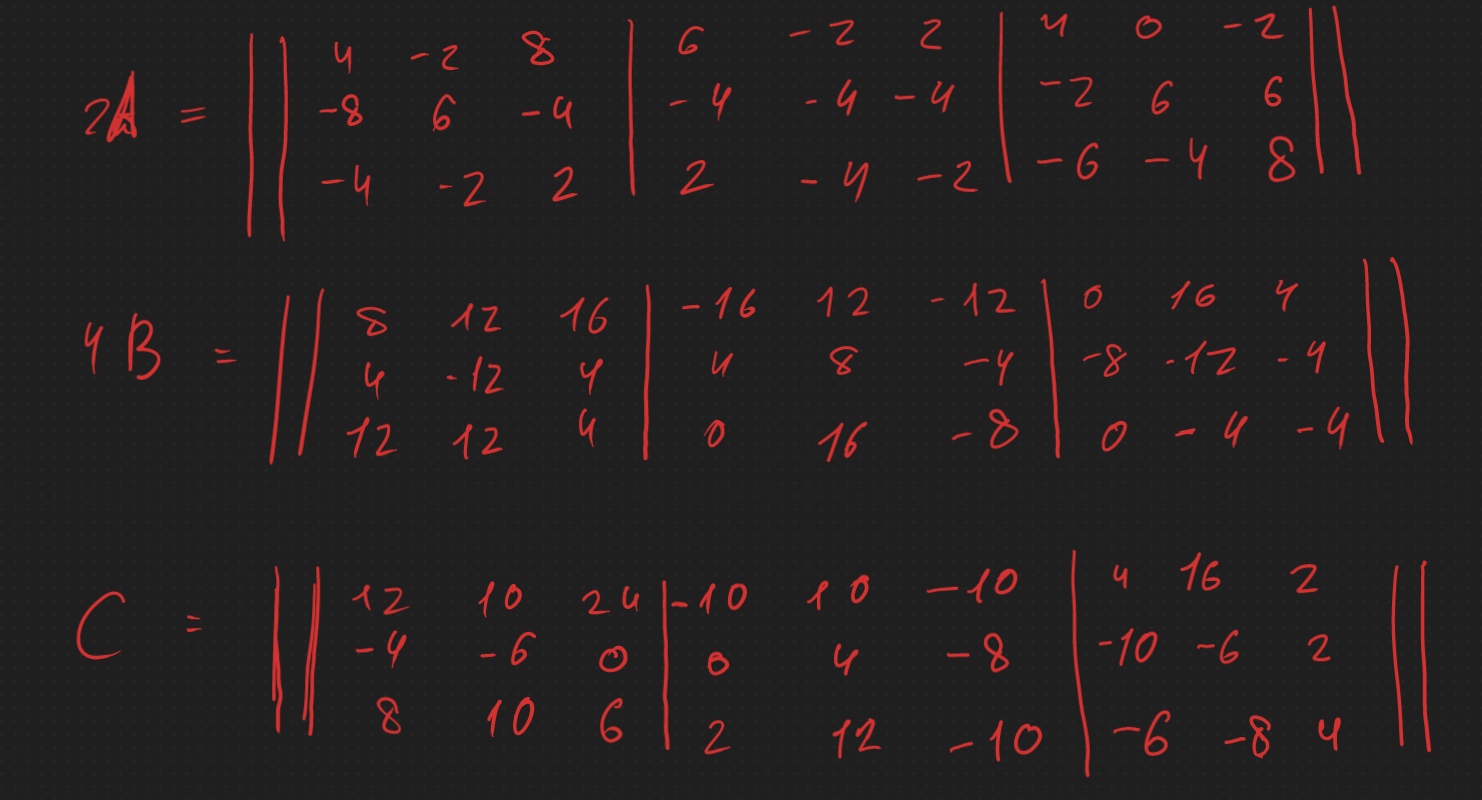 2A = || 4 -2 8 | 6 -2 2 | 4 0 -2 ||
-8 6 -4 | -4 -4 -4 | -2 6 6
-4 -2 2 | 2 -4 -2 | -6 -4 8
4B = || 8 12 16 | -16 12 -12 | 0 16 4 ||
4 -12 4 | 4 8 -4 | -8 -12 -4
12 12 4 | 0 16 -8 | 0 -4 -4
C = || 12 10 24 | -10 10 -10 | 4 16 2 ||
-4 -6 0 | 0 4 -8 | -10 -6 2
8 10 6 | 2 12 -10 | -6 -8 4